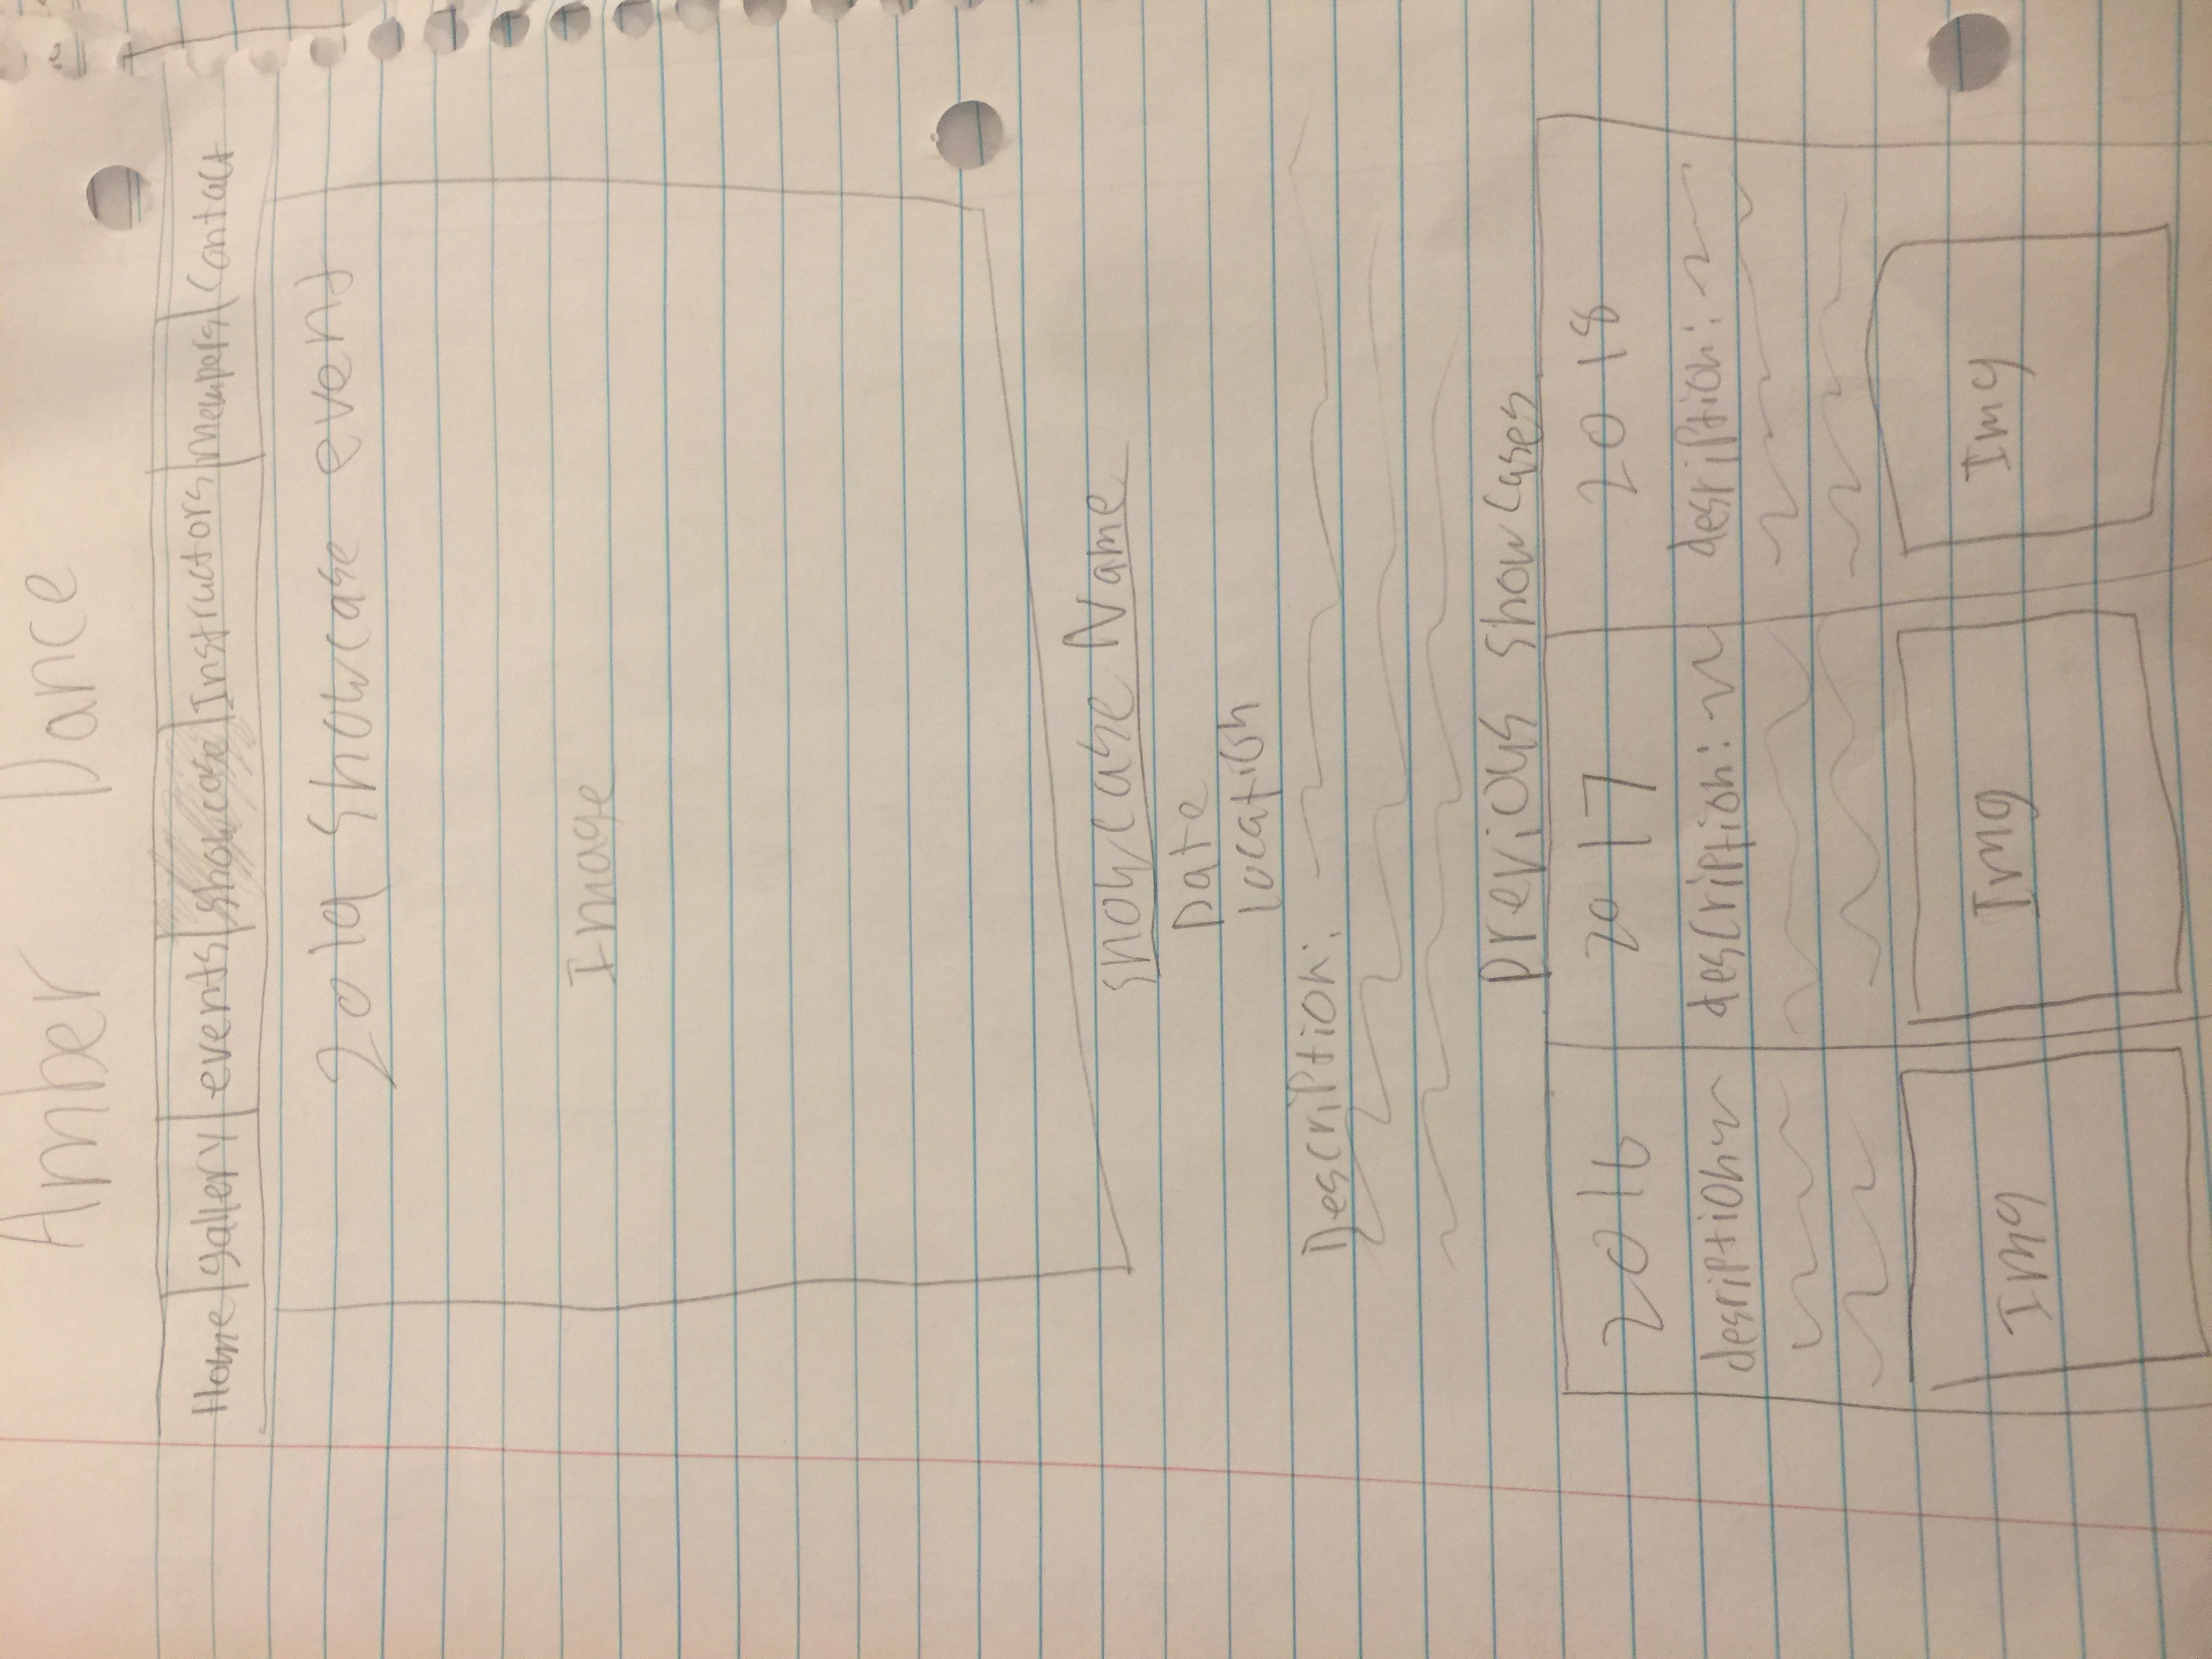 Amber Dance
Home gallery events showcase Instructors members Contact
2019 Showcase event
Image
Showcase Name
Date
Location
Description:
Previous showcases
2016 2017 2018
desription description: desription:
Img Img Img